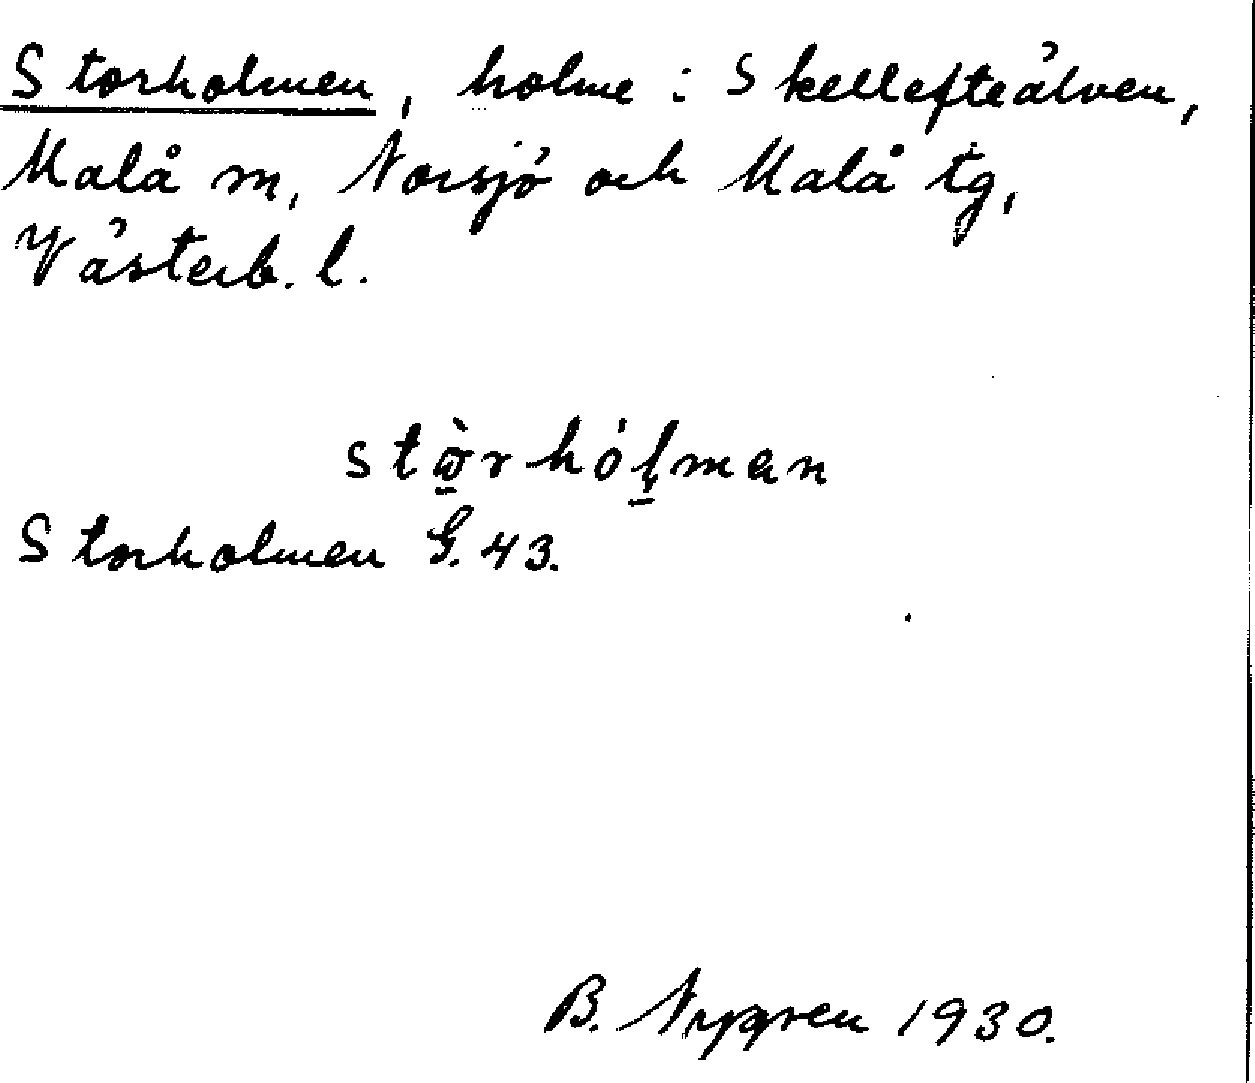 Storholmen, holme i Skellefteälven,
Malå sn, Norsjö och Malå tg,
Västerb. l.
Storholmen G. 43.
B. Nygren 1930.